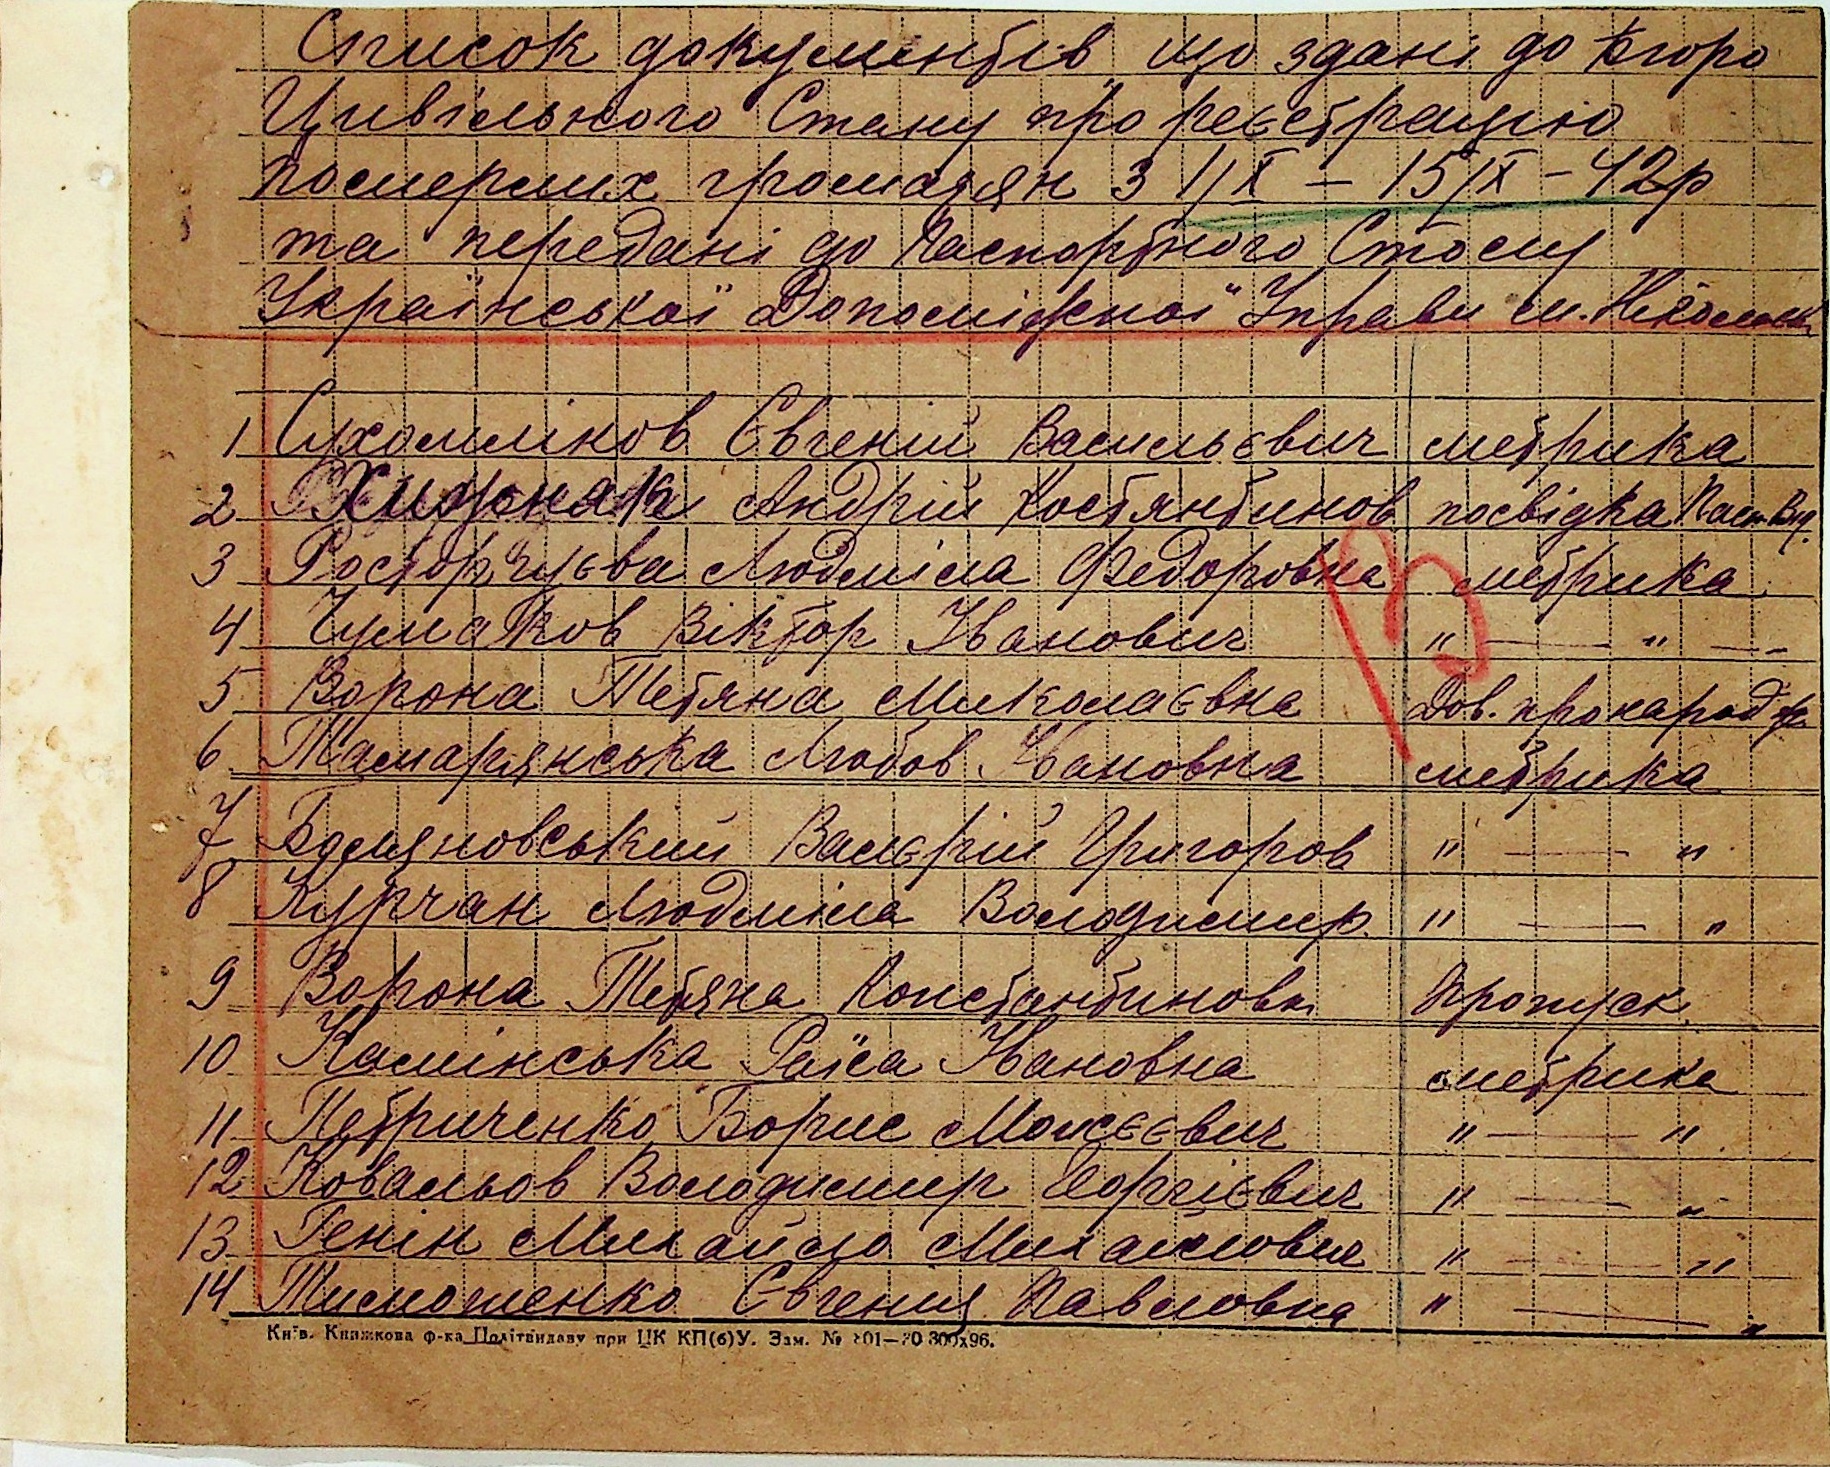 Список документів що здані до Бюро
Цивільного Стану про реєстрацію
померших громадян з 1/X – 15/X – 42р
та передані до Паспортного Столу
Української Допоміжної Управи м.
1 Сухомлінов Євгеній Васильєвич метрика
2 Хижняк Андрій Костянтинов посвідка Пасп. Від.
3 Росторгуєва Людміла Федоровна метрика
4 Чумаков Віктор Іванович " — " —
5 Ворона Тетяна Миколаєвна Дов. про народ
6 Тамарянська Любов Івановна метрика
7 Валєрій Григоров " — "
8 Курчан Людміла Володимир. " — "
9 Ворона Тетяна Константиновн Пропуск
10 Камінська Раїса Івановна метрика
11 Петриченко Борис Моисєєвич " — "
12 Ковальов Володимир Георгієвич " — "
13 Генін Михайло Михайлович " — "
14 Тимошенко Євгения Павловна " — "
Київ. Книжкова ф-ка Політвидаву при ЦК КП(б)У. Зам. №